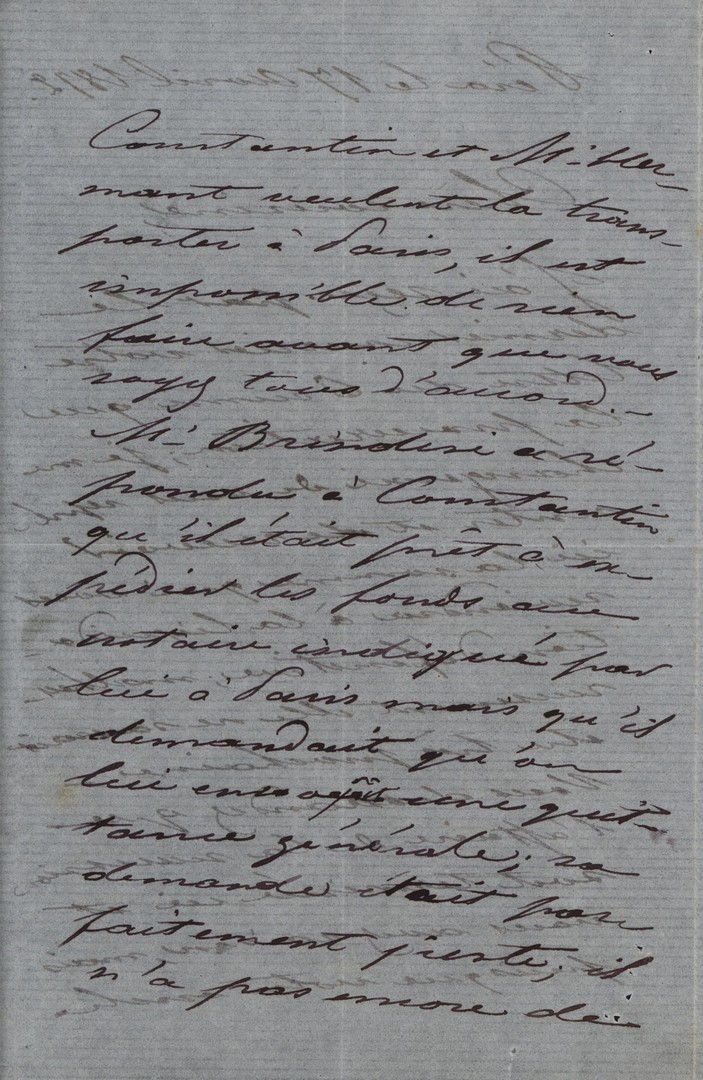 Constantin et Mr Her-
mant veulent la trans-
porter à Paris, il est
impossible de rien
faire avant que vous
soyez tous d'accord. –
Mr Brindisi a ré-
pondu à Constantin
qu'il était prêt à ex
pédier les fonds au
notaire indiqué par
lui à Paris mais qu'il
demandait qu'on
lui envoyât une quit-
tance générale; sa
demande était par
faitement juste; il
n'a pas encore de